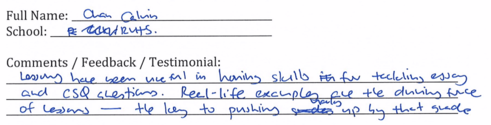 Full Name: Chan Calvin
School: RVHS.
Comments / Feedback / Testimonial:
Lessons have been useful in honing skills for tackling essay
and CSQ questions. Real-life examples are the driving force
of lessons — the key to pushing grades up by that grade